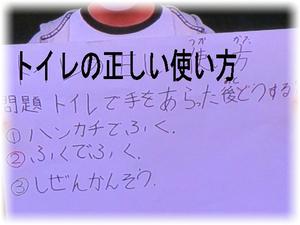 トイレの正しい使い方
つか かた
使方
問題 トイレで手をあらった後どうする
①ハンカチでふく.
②ふくでふく.
③しぜんかんそう.